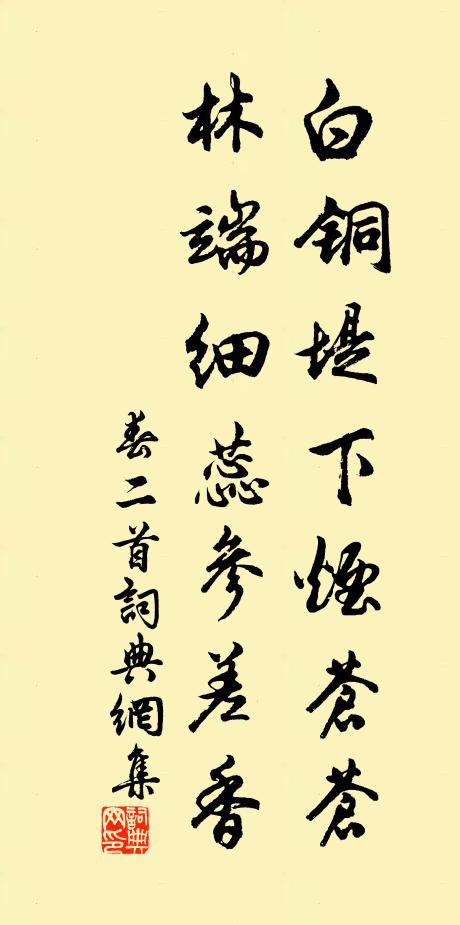 白铜堤下煙蒼蒼
林端细蕊參差香
春二首詞典網集
詞典网印